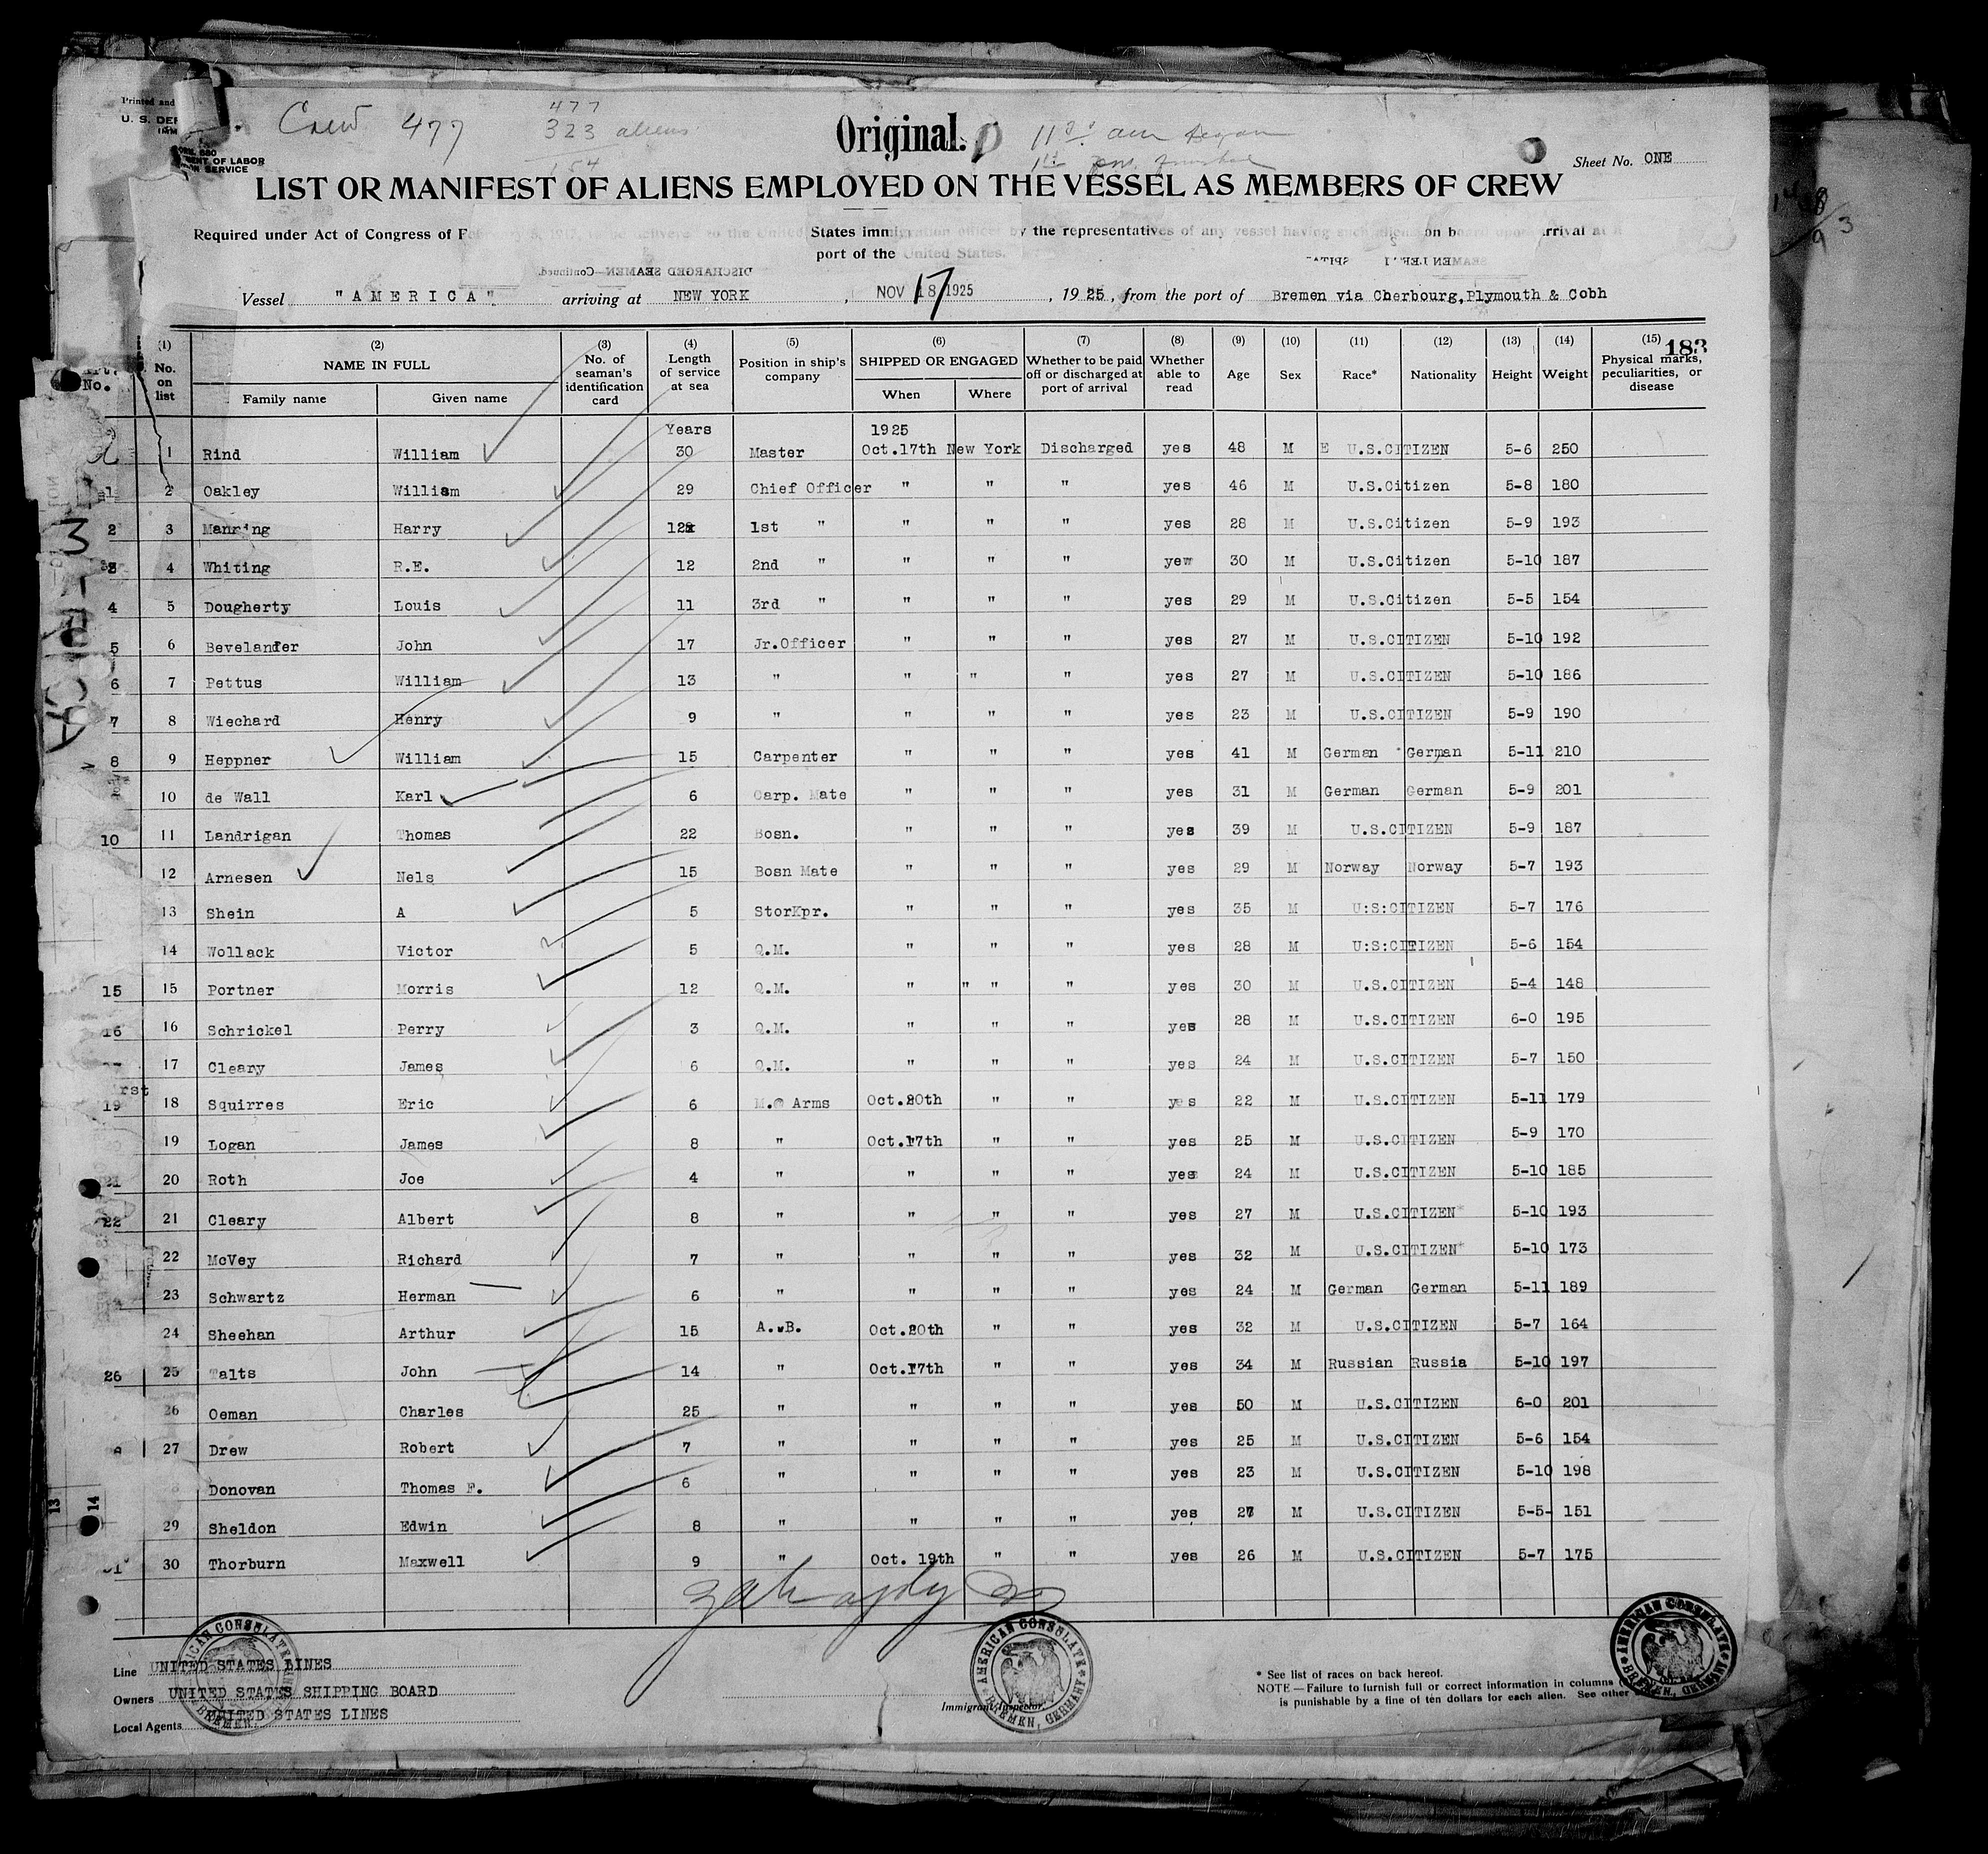 Printed and
U. S. DEP
Crew 477
477
323 aliens
154
Original.
11 am began
1 pm finished
MENT OF LABOR
SERVICE
Sheet No. ONE
LIST OR MANIFEST OF ALIENS EMPLOYED ON THE VESSEL AS MEMBERS OF CREW
Required under Act of Congress of February 5, 1917, to be delivered to the United States immigration officer by the representatives of any vessel having such aliens on board upon arrival at a
port of the United States.
DISCHARGED SEAMEN—Continued
Vessel "AMERICA" arriving at NEW YORK, NOV 18 1925 17, 1925, from the port of Bremen via Cherbourg,Plymouth & Cobh
183
(1) No. on list (2) NAME IN FULL Family name Given name (3) No. of seaman's identification card (4) Length of service at sea (5) Position in ship's company (6) SHIPPED OR ENGAGED When Where (7) Whether to be paid off or discharged at port of arrival (8) Whether able to read (9) Age (10) Sex (11) Race* (12) Nationality (13) Height (14) Weight (15) Physical marks, peculiarities, or disease
Years 1925
1 Rind William 30 Master Oct.17th New York Discharged yes 48 M E U.S.CITIZEN 5-6 250
1 2 Oakley William 29 Chief Officer " " " yes 46 M U.S.Citizen 5-8 180
2 3 Manning Harry 12 1st " " " " yes 28 M U.S.Citizen 5-9 193
3 4 Whiting R.E. 12 2nd " " " " yew 30 M U.S.Citizen 5-10 187
4 5 Dougherty Louis 11 3rd " " " " yes 29 M U.S.Citizen 5-5 154
5 6 Bevelander John 17 Jr.Officer " " " yes 27 M U.S.CITIZEN 5-10 192
6 7 Pettus William 13 " " " " yes 27 M U.S.CITIZEN 5-10 186
7 8 Wiechard Henry 9 " " " " yes 23 M U.S.CITIZEN 5-9 190
8 9 Heppner William 15 Carpenter " " " yes 41 M German German 5-11 210
10 de Wall Karl 6 Carp. Mate " " " yes 31 M German German 5-9 201
10 11 Landrigan Thomas 22 Bosn. " " " yes 39 M U.S.CITIZEN 5-9 187
12 Arnesen Nels 15 Bosn Mate " " " yes 29 M Norway Norway 5-7 193
13 Shein A 5 StorKpr. " " " yes 35 M U:S:CITIZEN 5-7 176
14 Wollack Victor 5 Q.M. " " " yes 28 M U:S:CITIZEN 5-6 154
15 15 Portner Morris 12 Q.M. " " " " yes 30 M U.S.CITIZEN 5-4 148
16 16 Schrickel Perry 3 Q.M. " " " yes 28 M U.S.CITIZEN 6-0 195
17 Cleary James 6 Q.M. " " " yes 24 M U.S.CITIZEN 5-7 150
19 18 Squirres Eric 6 M.@ Arms Oct.20th " " yes 22 M U.S.CITIZEN 5-11 179
19 Logan James 8 " Oct.17th " " yes 25 M U.S.CITIZEN 5-9 170
21 20 Roth Joe 4 " " " " yes 24 M U.S.CITIZEN 5-10 185
22 21 Cleary Albert 8 " " " " yes 27 M U.S.CITIZEN* 5-10 193
22 McVey Richard 7 " " " " yes 32 M U.S.CITIZEN* 5-10 173
23 Schwartz Herman 6 " " " " yes 24 M German German 5-11 189
24 Sheehan Arthur 15 A.B. Oct.20th " " yes 32 M U.S.CITIZEN 5-7 164
26 25 Talts John 14 " Oct.17th " " yes 34 M Russian Russia 5-10 197
26 Oeman Charles 25 " " " " yes 50 M U.S.CITIZEN 6-0 201
27 Drew Robert 7 " " " " yes 25 M U.S.CITIZEN 5-6 154
Donovan Thomas F. 6 " " " " yes 23 M U.S.CITIZEN 5-10 198
29 Sheldon Edwin 8 " " " " yes 27 M U.S.CITIZEN 5-5- 151
30 Thorburn Maxwell 9 " Oct. 19th " " yes 26 M U.S.CITIZEN 5-7 175
Line UNITED STATES LINES
Owners UNITED STATES SHIPPING BOARD
Local Agents UNITED STATES LINES
AMERICAN CONSULATE BREMEN, GERMANY
Immigrant Inspector.
AMERICAN CONSULATE BREMEN, GERMANY
* See list of races on back hereof.
NOTE—Failure to furnish full or correct information in columns
is punishable by a fine of ten dollars for each alien. See other
AMERICAN CONSULATE BREMEN, GERMANY
13
14